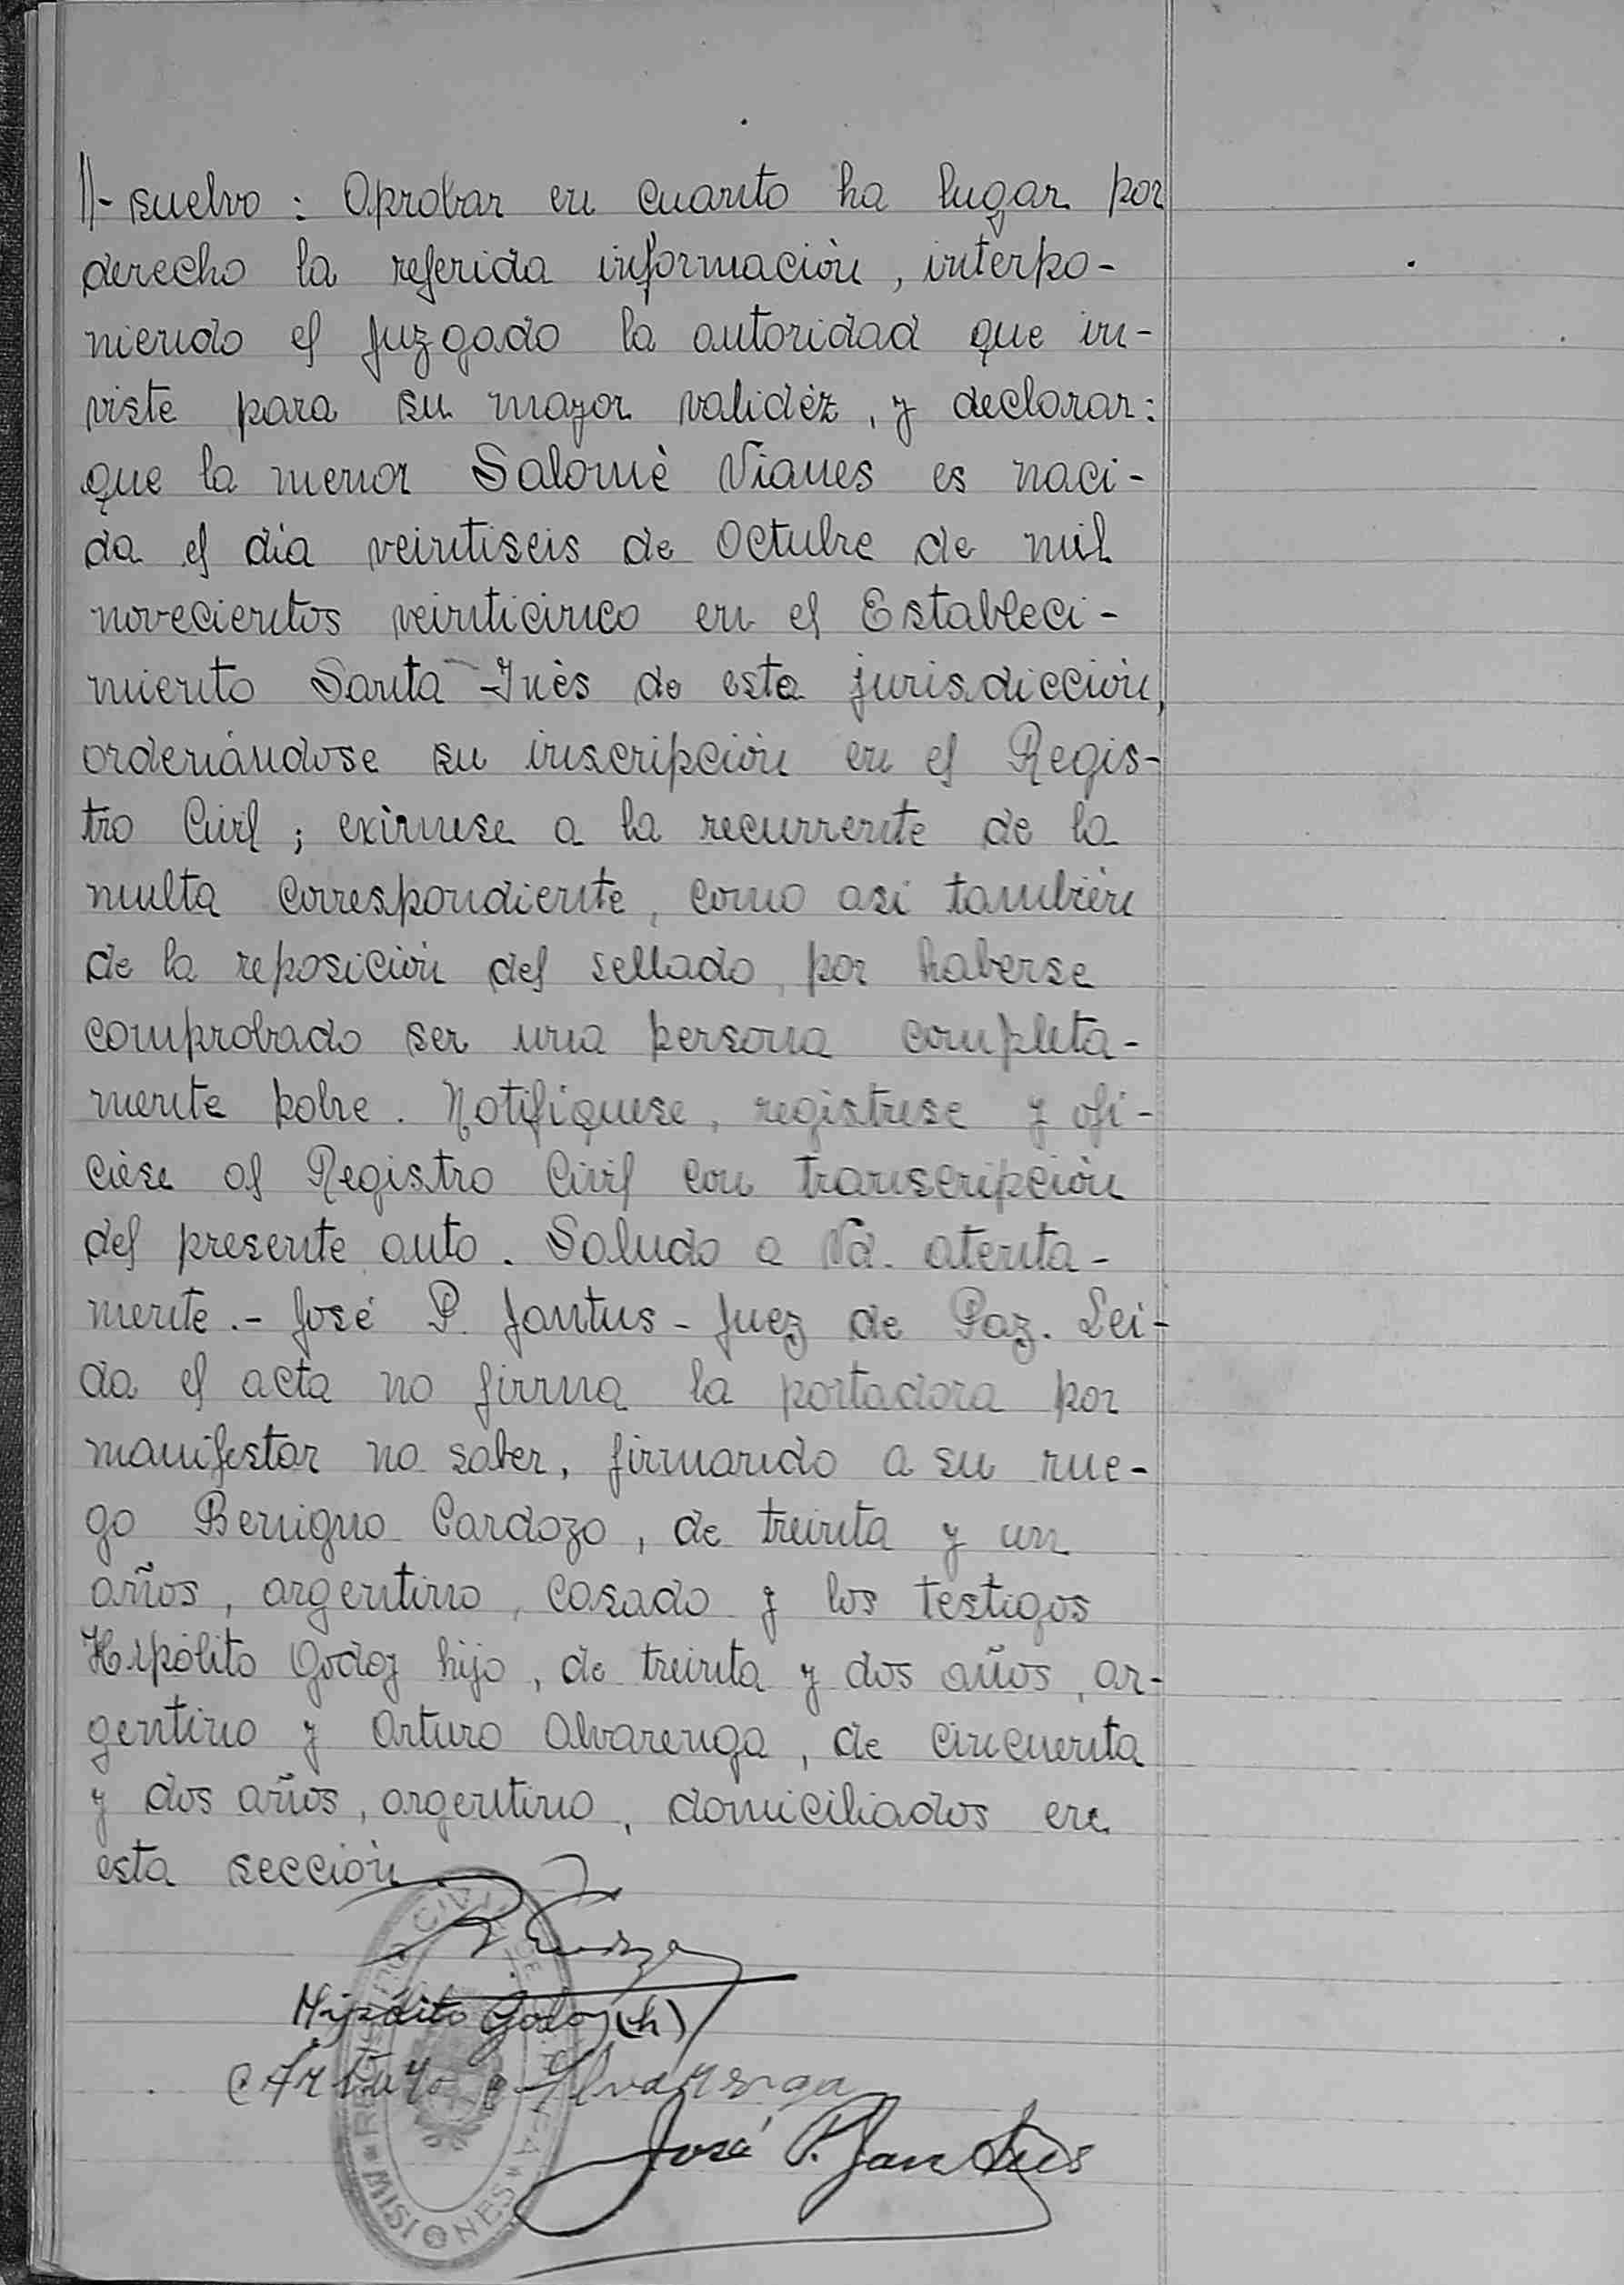 //- suelvo : Aprobar en cuanto ha lugar por
derecho la referida informaciòn, interpo-
niendo el Juzgado la autoridad que in-
viste para su mayor validèz, y declarar:
que la menor Salomè Vianes es naci-
da el dia veintiseis de Octubre de mil
novecientos veinticinco en el Estableci-
miento Santa Inès de esta jurisdicciòn,
ordenándose su inscripciòn en el Regis-
tro Civil ; exìmese a la recurrente de la
multa correspondiente, como asi tambièn
de la reposiciòn del sellado, por haberse
comprobado ser una persona completa-
mente pobre. Notifiquese, registrese y ofi-
cièse al Registro Civil con transcripciòn
del presente auto. Saludo a Vd. atenta-
mente.- José P. Jantus - Juez de Paz. Lei-
da el acta no firma la portadora por
manifestar no saber, firmando a su rue-
go Benigno Cardozo, de treinta y un
años, argentino, casado y los testigos
Hipólito Godoy hijo, de treinta y dos años, ar-
gentino y Arturo Alvarenga, de cincuenta
y dos años, argentino, domiciliados en
esta secciòn
Hipólito Godoy (h)
Arturo Alvarenga
José P. Jantus
REGISTRO CIVIL DE
* MISIONES *